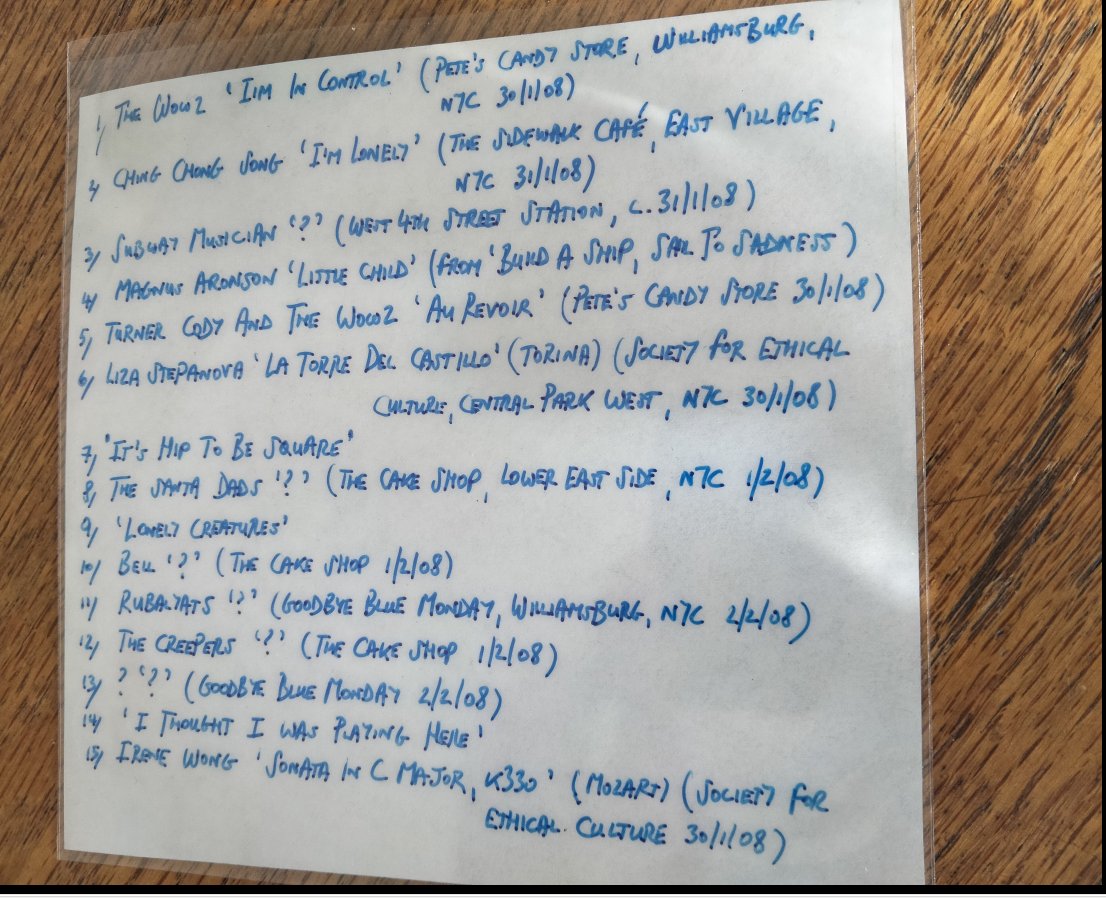 1, THE WOWZ 'I'M IN CONTROL' (PETE'S CANDY STORE, WILLIAMSBURG,
NYC 30/1/08)
2, CHING CHONG SONG 'I'M LONELY' (THE SIDEWALK CAFÉ, EAST VILLAGE,
NYC 31/1/08)
3, SUBWAY MUSICIAN '?' (WEST 4TH STREET STATION, C. 31/1/08)
4, MAGNUS ARONSON 'LITTLE CHILD' (FROM 'BUILD A SHIP, SAIL TO SADNESS)
5, TURNER CODY AND THE WOWZ 'AU REVOIR' (PETE'S CANDY STORE 30/1/08)
6, LIZA STEPANOVA 'LA TORRE DEL CASTILLO' (TORINA) (SOCIETY FOR ETHICAL
CULTURE, CENTRAL PARK WEST, NYC 30/1/08)
7, 'IT'S HIP TO BE SQUARE'
8, THE SANTA DADS '?' (THE CAKE SHOP, LOWER EAST SIDE, NYC 1/2/08)
9, 'LONELY CREATURES'
10, BELL '?' (THE CAKE SHOP 1/2/08)
11, RUBAIYATS '?' (GOODBYE BLUE MONDAY, WILLIAMSBURG, NYC 2/2/08)
12, THE CREEPERS '?' (THE CAKE SHOP 1/2/08)
13, ? '?' (GOODBYE BLUE MONDAY 2/2/08)
14, 'I THOUGHT I WAS PLAYING HERE'
15, IRENE WONG 'SONATA IN C MAJOR, K330' (MOZART) (SOCIETY FOR
ETHICAL CULTURE 30/1/08)